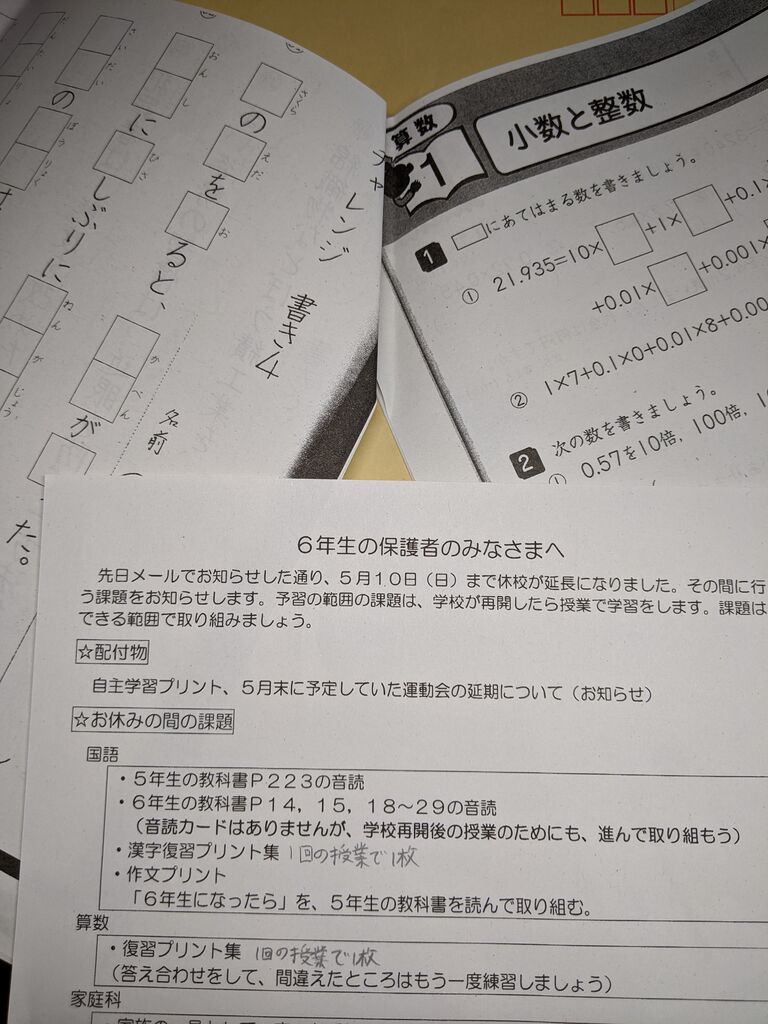 チャレンジ 書き4
名前
さくら
の
えだ
を
お
ると、
かへん
が
た。
おんし
に
ひさ
しぶりに
ねんがじょう
さいだい
の
ぼうりょく
算数
1
小数と整数
1 □にあてはまる数を書きましょう。
① 21.935=10×□+1×□+0.1×
+0.01×□+0.001×
② 1×7+0.1×0+0.01×8+0.00
2 次の数を書きましょう。
① 0.57を10倍,100倍,
6年生の保護者のみなさまへ
先日メールでお知らせした通り、5月10日(日)まで休校が延長になりました。その間に行
う課題をお知らせします。予習の範囲の課題は、学校が再開したら授業で学習をします。課題は
できる範囲で取り組みましょう。
☆配付物
自主学習プリント、5月末に予定していた運動会の延期について(お知らせ)
☆お休みの間の課題
国語
・5年生の教科書P223の音読
・6年生の教科書P14,15,18~29の音読
(音読カードはありませんが、学校再開後の授業のためにも、進んで取り組もう)
・漢字復習プリント集 1回の授業で1枚
・作文プリント
「6年生になったら」を、5年生の教科書を読んで取り組む。
算数
・復習プリント集 1回の授業で1枚
(答え合わせをして、間違えたところはもう一度練習しましょう)
家庭科